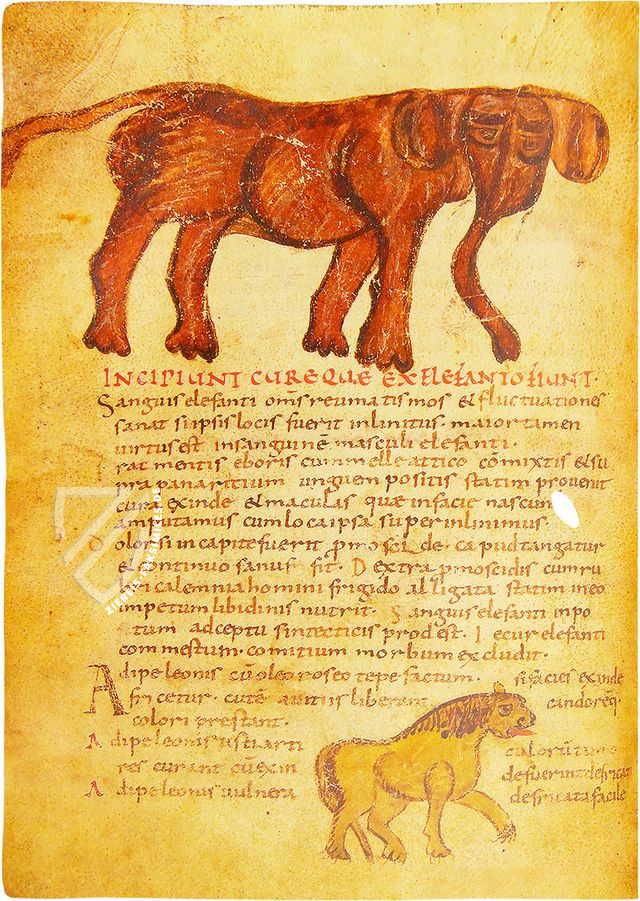 INCIPIUNT CURE QUE EX ELEFANTO FIUNT.
Sanguis elefanti om̄s reumatismos et fluctuationes
sanat si ipsis locis fuerit inlinitus. maior tamen
virtus est in sanguinē masculi elefanti.
rat mentis eboris cum melle attico cōmixtis et su
pra panaritium unguem positis statim provenit
cura exinde et maculas quae in facie nascun
amputamus cum loca ipsa superinlinimus.
Dolor si in capite fuerit de caput tangatur
et continuo sanus fit. Dextra pmoscidis cum ru
bri calemnia homini frigido alligata statim in eo
impetum libidinis nutrit. Sanguis elefanti in po
tum adceptu sintecticis prodest. Iecur elefanti
commestum. comitium morbum excludit.
Adipe leonis cū oleo roseo tepefactum. si facies exinde
fricetur. cutē a vitiis liberant candoreq.
colori prestant.
Adipe leonis usti arti culorū tumo
res curant cū ex in de fuerint defrican
Adipe leonis vulnera defricata facile